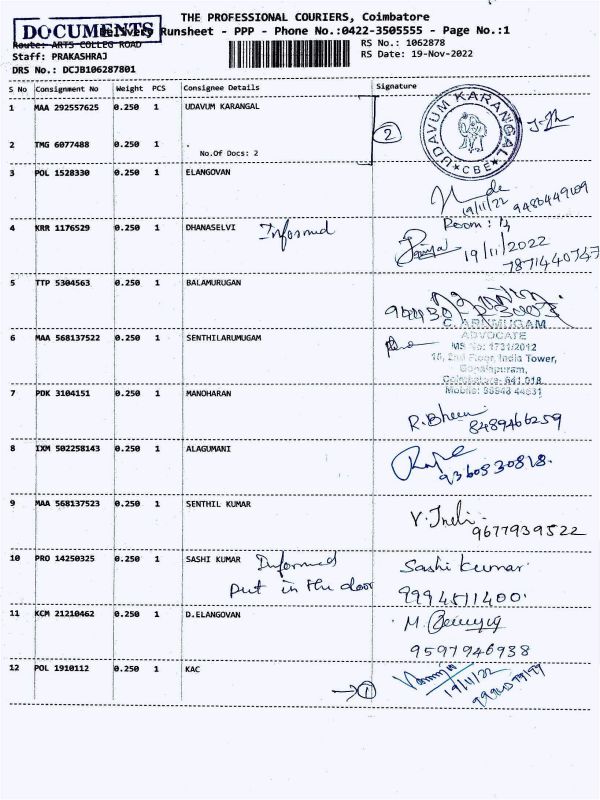 THE PROFESSIONAL COURIERS, Coimbatore
DOCUMENTS
Delivery Runsheet - PPP - Phone No.:0422-3505555 - Page No.:1
Route: ARTS COLLEG ROAD
RS No.: 1062878
Staff: PRAKASHRAJ
RS Date: 19-Nov-2022
DRS No.: DCJB106287801
S No Consignment No Weight PCS Consignee Details Signature
1 MAA 292557625 0.250 1 UDAVUM KARANGAL
UDAVUM KARANGAL
CBE
2
2 TMG 6077488 0.250 1 .
No.Of Docs: 2
3 POL 1528330 0.250 1 ELANGOVAN
19/11/22 9486449109
4 KRR 1176529 0.250 1 DHANASELVI Informed
Room:
19/11/2022
7871440747
5 TTP 5304563 0.250 1 BALAMURUGAN
6 MAA 568137522 0.250 1 SENTHILARUMUGAM
C. ARUMUGAM
ADVOCATE
MS No: 1731/2012
15, 2nd Floor, India Tower,
Gopalapuram,
Coimbatore- 641 018.
Mobile: 98948 44631
7 PDK 3104151 0.250 1 MANOHARAN
8489466259
8 IXM 502258143 0.250 1 ALAGUMANI
9360830818.
9 MAA 568137523 0.250 1 SENTHIL KUMAR
9677939522
10 PRO 14250325 0.250 1 SASHI KUMAR Informed
put in the door
Sashi kumar
9994511400.
11 KCM 21210462 0.250 1 D.ELANGOVAN
9597946938
12 POL 1910112 0.250 1 KAC
1
19/11/22